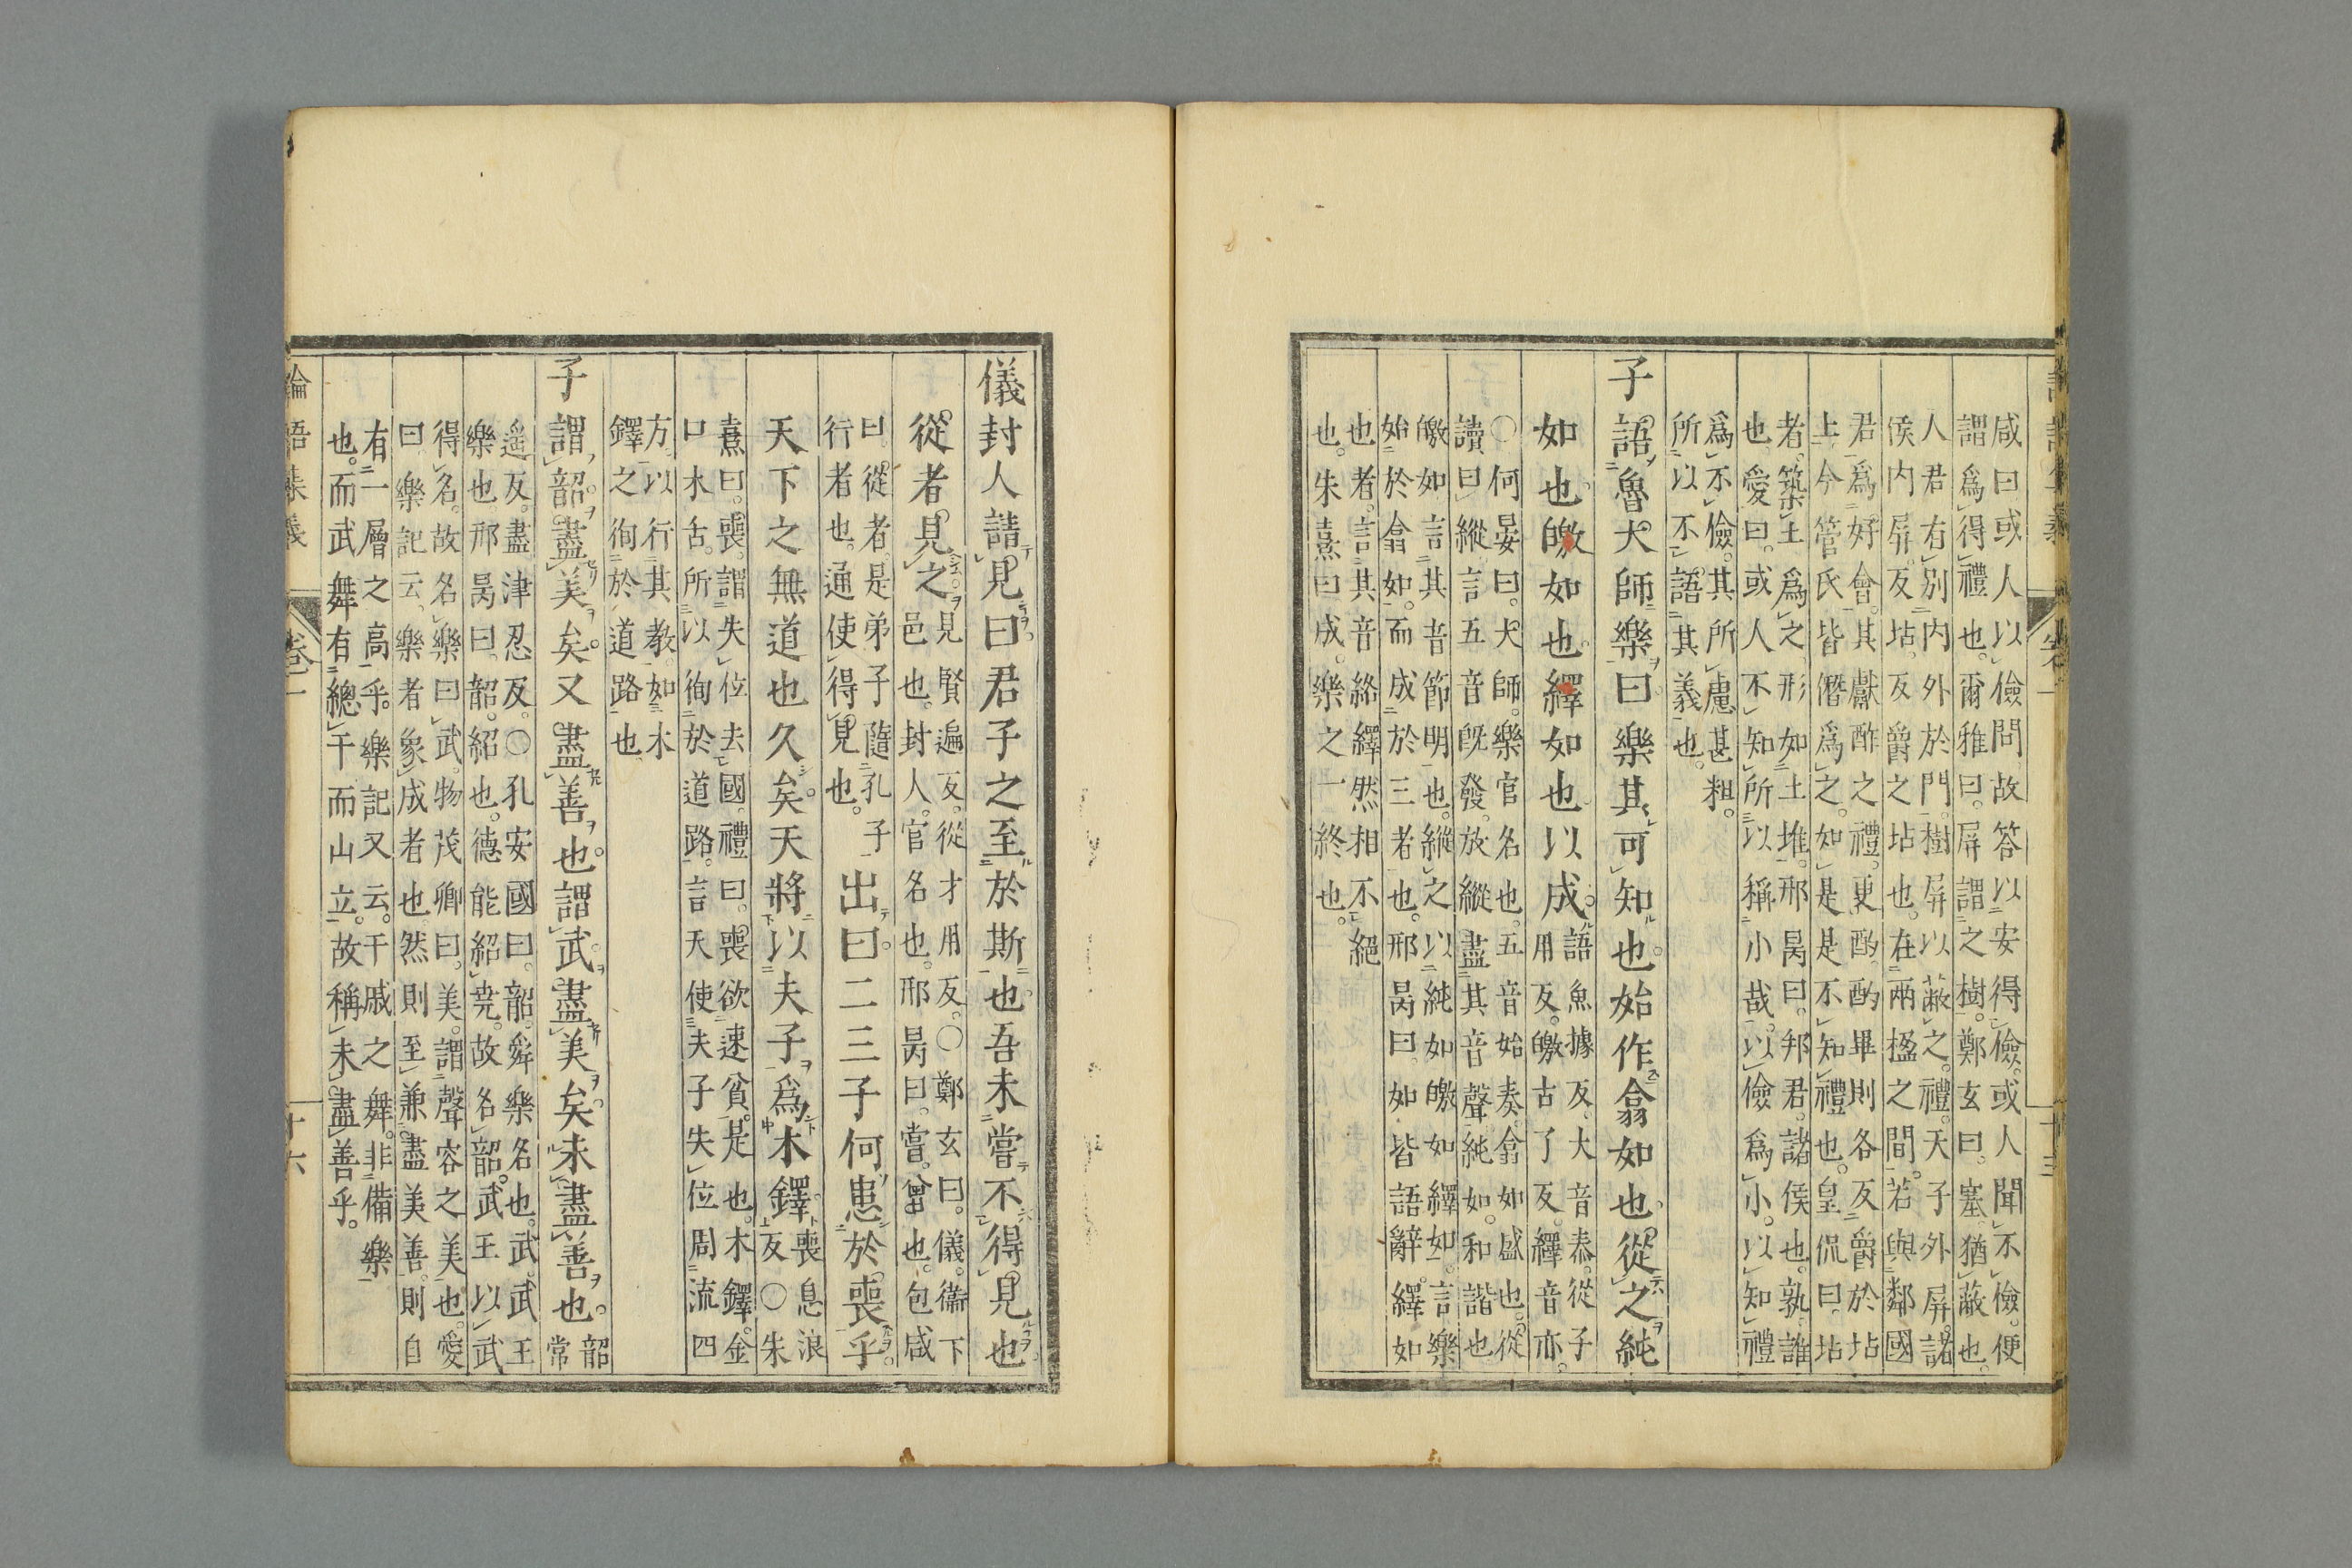 咸曰或人以儉問故答以安得儉。或人聞不儉。便
謂爲得禮也。爾雅曰。屏謂之樹。鄭玄曰。塞猶蔽也。
人君右別內外於門。樹屏以蔽之。禮。天子外屏。諸
侯內屏。反坫。反爵之坫也。在兩楹之間。若與鄰國
君爲好會。其獻酢之禮。更酌。酌畢則各反爵於坫
上今管氏皆僭爲之。如是是不知禮也。皇侃曰。坫
者。築土爲之。形如土堆。邢昺曰。邦君。諸侯也。孰誰
也。愛曰。或人不知所以稱小哉。以儉爲小。以知禮
爲不儉。其所慮甚粗。
所以不語其義也。
子語魯大師樂曰樂其可知也始作翕如也從之純
如也皦如也繹如也以成語魚據反。大音泰。從子
用反。皦古了反。繹音亦。
〇何晏曰。大師。樂官名也。五音始奏。翕如盛也。從
讀曰縱言五音既發。放縱盡其音聲純如。和諧也
皦如言其音節明也。縱之以純如皦如繹如。言樂
始於翕如。而成於三者也。邢昺曰。如皆語辭。繹如
也者。言其音絡繹然相不絕
也。朱熹曰成。樂之一終也。
儀封人請見曰君子之至於斯也吾未嘗不得見也
從者見之見賢遍反。從才用反。〇鄭玄曰。儀。衞下
邑也。封人。官名也。邢昺曰。嘗。曾也。包咸
曰。從者。是弟子隨孔子
行者也。通使得見也。出曰二三子何患於喪乎
天下之無道也久矣天將以夫子爲木鐸喪息浪
反〇朱
熹曰。喪。謂失位去國。禮曰。喪欲速貧。是也。木鐸。金
口木舌。所以徇於道路。言天使夫子失位周流四
方。以行其教。如木
鐸之徇於道路也
子謂韶盡美矣又盡善也謂武盡美矣未盡善也韶
常
遙反。盡津忍反。〇孔安國曰。韶。舜樂名也。武。武王
樂也。邢昺曰。韶。紹也。德能紹堯。故名韶。武王以武
得名。故名樂曰武。物茂卿曰。美。謂聲容之美也。愛
曰樂記云。樂者象成者也然則至兼盡美善。則自
有一層之高乎。樂記又云。干戚之舞。非備樂
也。而武舞有總干而山立。故稱未盡善乎。
卷一
十六